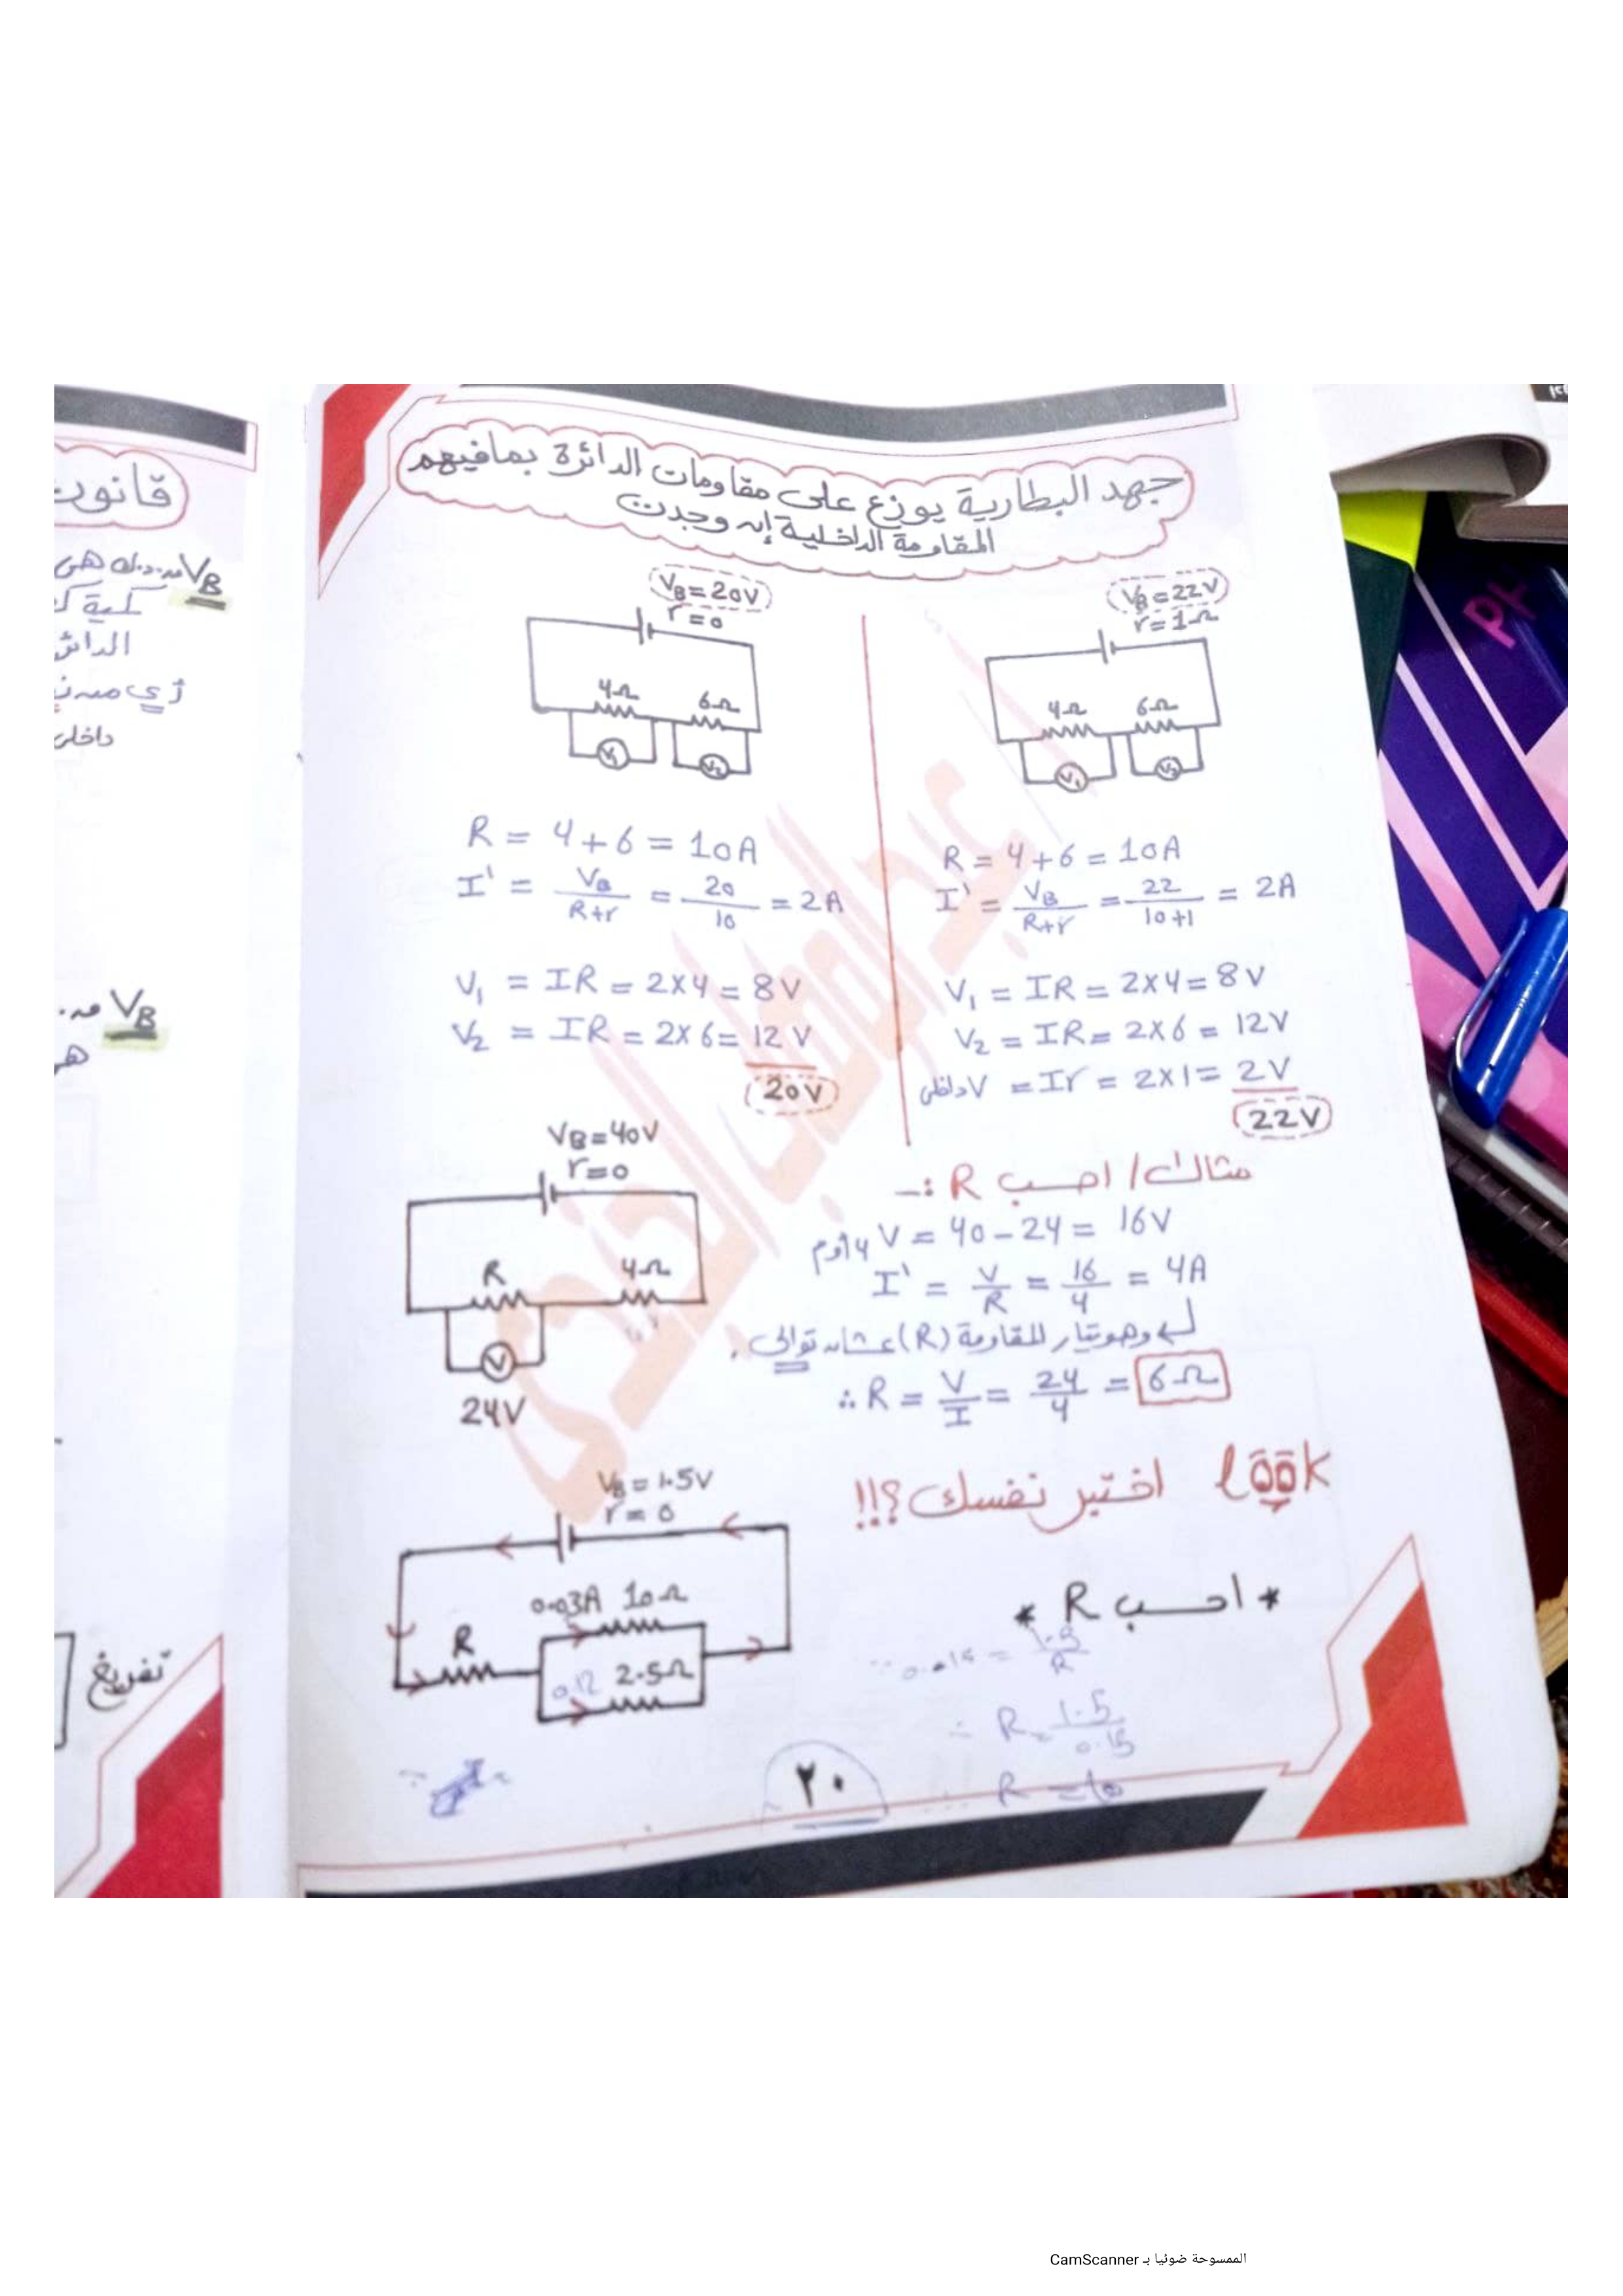 جهد البطارية يوزع على مقاومات الدائرة بمافيهم
المقاومة الداخلية إن وجدت
VB = 20V
r = 0
4Ω
6Ω
V1
V2
R = 4 + 6 = 10A
I' = VB / R+r = 20 / 10 = 2A
V1 = IR = 2×4 = 8V
V2 = IR = 2×6 = 12V
20V
VB = 22V
r = 1Ω
4Ω
6Ω
V1
V2
R = 4 + 6 = 10A
I' = VB / R+r = 22 / 10+1 = 2A
V1 = IR = 2×4 = 8V
V2 = IR = 2×6 = 12V
V داخلى = Ir = 2×1 = 2V
22V
مثال / احسب R :-
VB = 40V
r = 0
R
4Ω
V
24V
V 4أوم = 40 - 24 = 16V
I' = V / R = 16 / 4 = 4A
وهو تيار المقاومة (R) عشان توالى .
∴ R = V / I = 24 / 4 = 6Ω
look اختبر نفسك ؟!!
VB = 1.5V
r = 0
0.03A 10Ω
R
0.12 2.5Ω
* احسب R *
∴ R = 1.5 / 0.15
R = 10
٢٠
قانون
VB
كمية
الدائر
زي
داخلى
VB
هى
تفريغ
الممسوحة ضوئيا بـ CamScanner